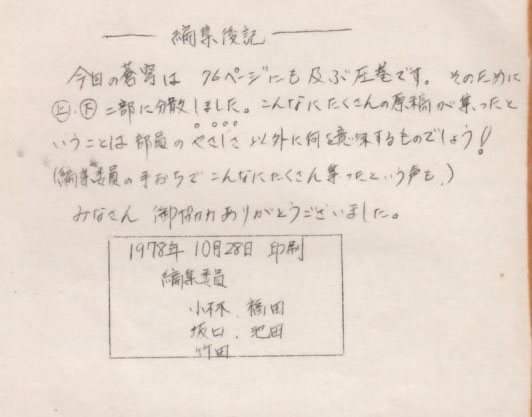 編集後記
今日の蒼穹は 76ページにも及ぶ圧巻です。そのために
㊤.㊦ 二部に分散しました。こんなにたくさんの原稿が集ったと
いうことは部員の やさしさ 以外に何を意味するものでしょう!
(編集委員の手おちでこんなにたくさん集ったという声も.)
みなさん 御協力ありがとうございました。
1978年 10月28日 印刷
編集委員
小林. 福田
坂口. 池田
竹田